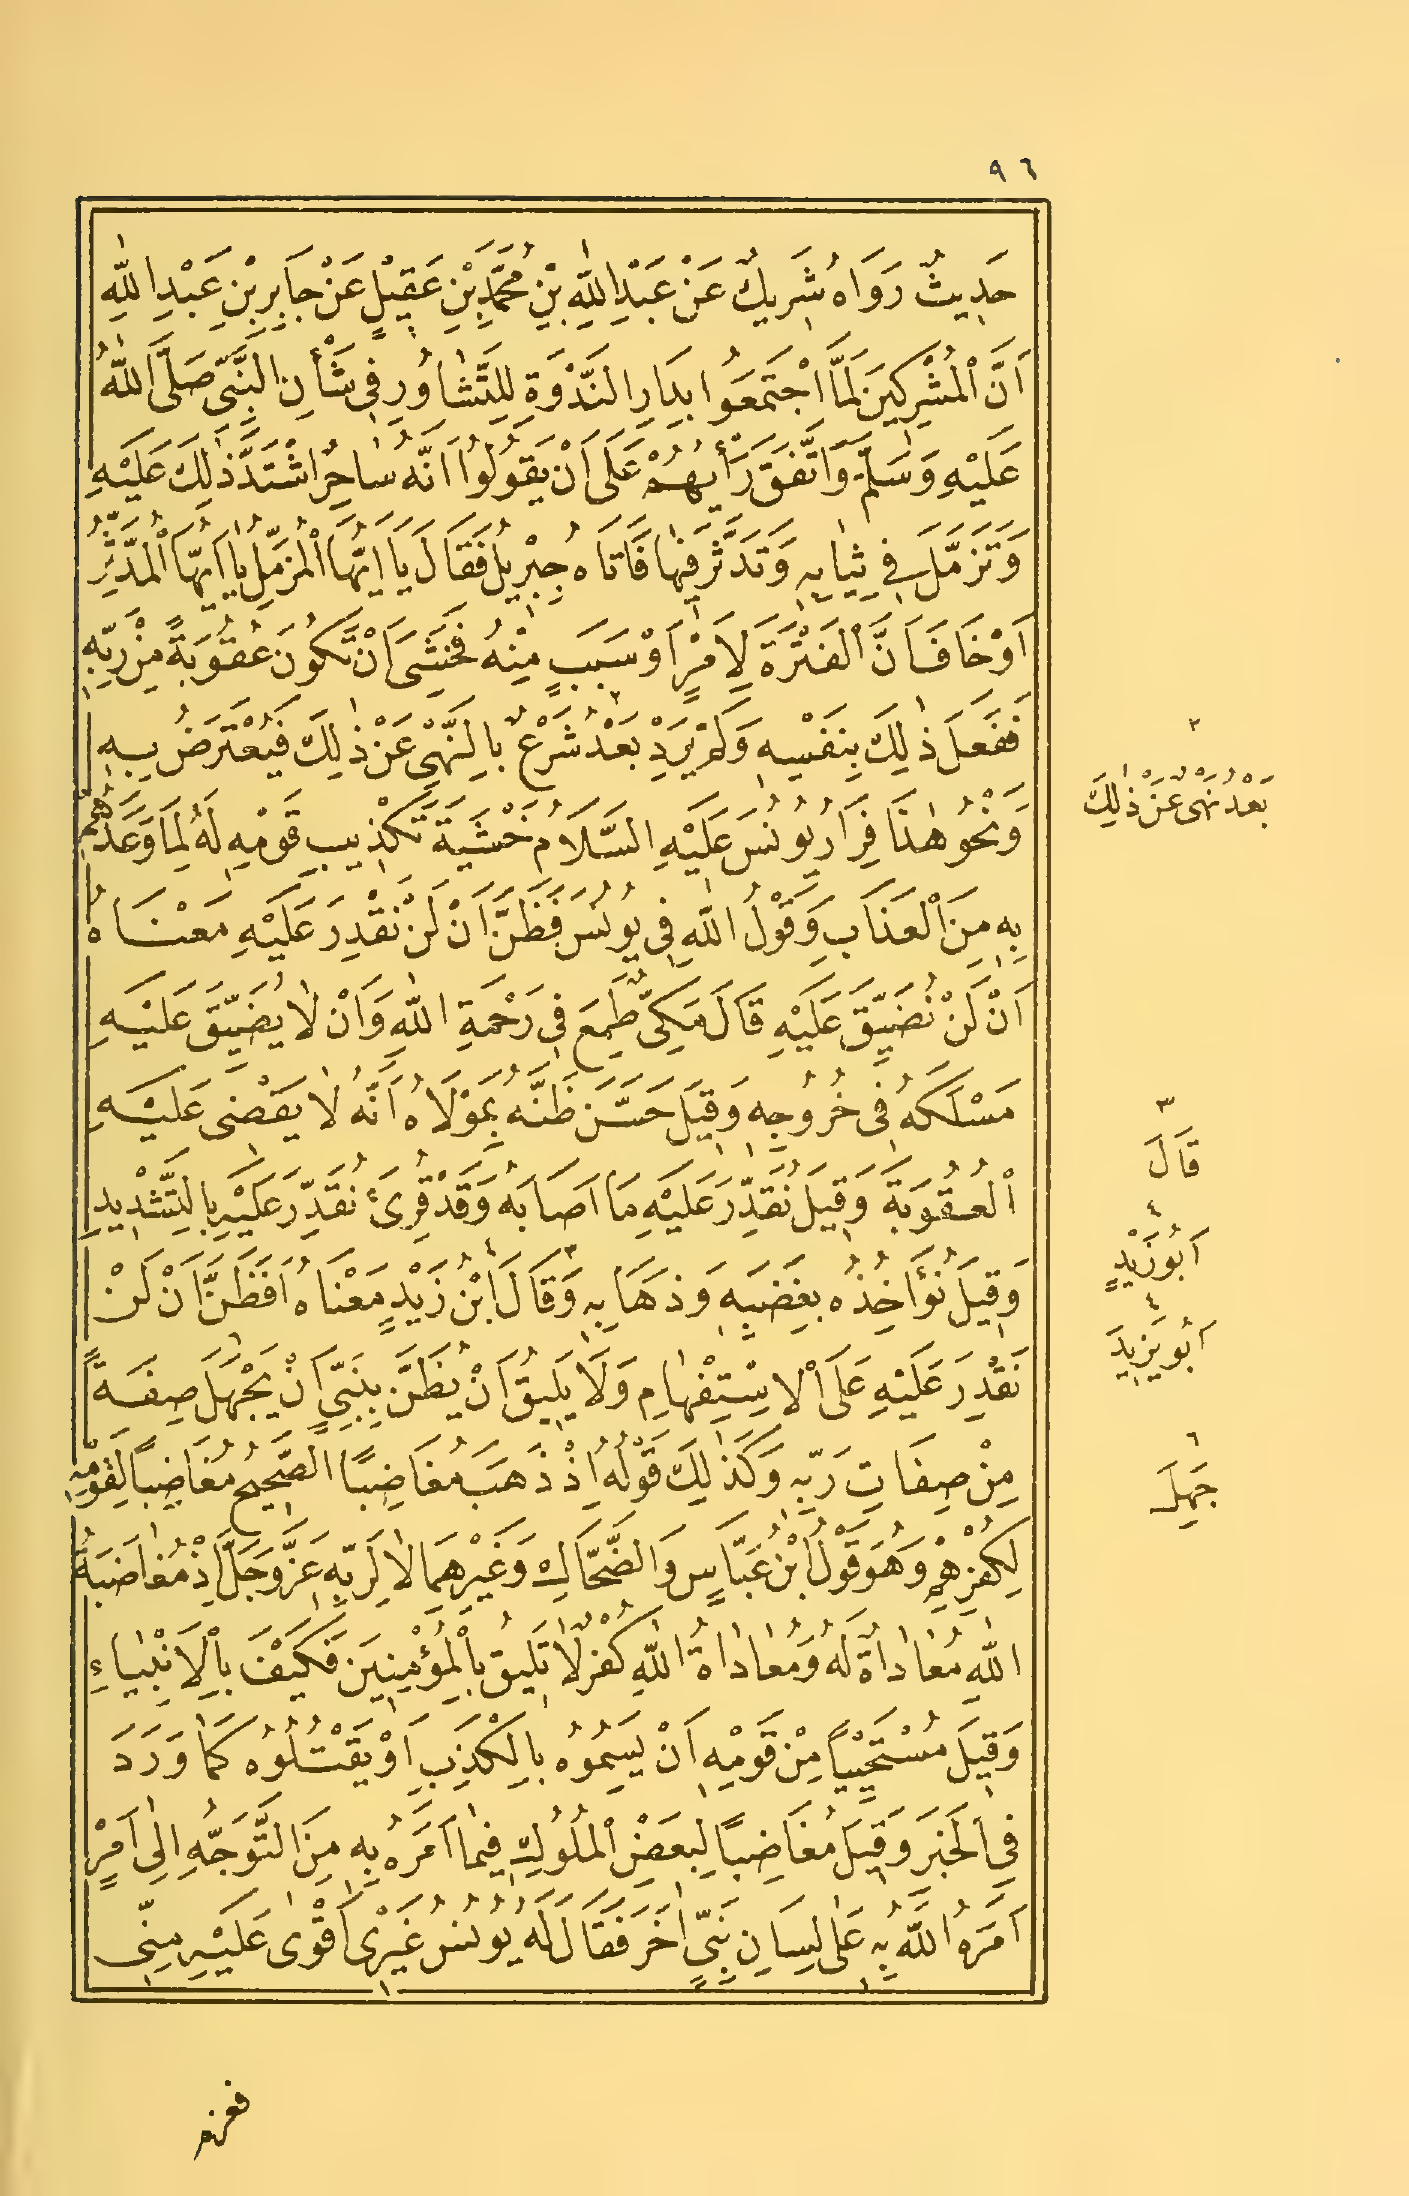 ٩٦
حَدِيثٌ رَوَاهُ شَرِيكٌ عَنْ عَبْدِ اللّٰهِ بْنِ مُحَمَّدِ بْنِ عَقِيْلٍ عَنْ جَابِرِ بْنِ عَبْدِ اللّٰهِ
اَنَّ الْمُشْرِكِينَ لَمَّا اجْتَمَعُوا بِدَارِ النَّدْوَةِ لِلتَّشَاوُرِ فِى شَأْنِ النَّبِىِّ صَلَّى اللّٰهُ
عَلَيْهِ وَسَلَّمَ وَاتَّفَقَ رَأْيُهُمْ عَلَى اَنْ يَقُولُوا اَنَّهُ سَاحِرٌ اشْتَدَّ ذٰلِكَ عَلَيْهِ
وَتَزَمَّلَ فِى ثِيَابِهِ وَتَدَثَّرَ فِيهَا فَاَتَاهُ جِبْرِيلُ فَقَالَ يَا اَيُّهَا الْمُزَّمِّلُ يَا اَيُّهَا الْمُدَّثِّرُ
اَوْ خَافَ اَنَّ الْفَتْرَةَ لِاَمْرٍ اَوْ سَبَبٍ مِنْهُ فَخَشِىَ اَنْ تَكُونَ عُقُوبَةً مِنْ رَبِّهِ
فَفَعَلَ ذٰلِكَ بِنَفْسِهِ وَلَمْ يَرِدْ بَعْدُ شَرْعٌ بِالنَّهْىِ عَنْ ذٰلِكَ فَيُعْتَرَضُ بِهِ
وَنَحْوُ هٰذَا فِرَارُ يُونُسَ عَلَيْهِ السَّلَامُ خَشْيَةَ تَكْذِيبِ قَوْمِهِ لَهُ لِمَا وَعَدَهُمْ
بِهِ مِنَ الْعَذَابِ وَقَوْلُ اللّٰهِ فِى يُونُسَ فَظَنَّ اَنْ لَنْ نَقْدِرَ عَلَيْهِ مَعْنَاهُ
اَنْ لَنْ نُضَيِّقَ عَلَيْهِ قَالَ مَكِّىٌّ طَمِعَ فِى رَحْمَةِ اللّٰهِ وَاَنْ لَا يُضَيِّقَ عَلَيْهِ
مَسْلَكَهُ فِى خُرُوجِهِ وَقِيلَ حَسَّنَ ظَنَّهُ بِمَوْلَاهُ اَنَّهُ لَا يَقْضِى عَلَيْهِ
الْعُقُوبَةَ وَقِيلَ نُقَدِّرَ عَلَيْهِ مَا اَصَابَهُ وَقَدْ قُرِئَ نُقَدِّرَ عَلَيْهِ بِالتَّشْدِيدِ
وَقِيلَ نُؤَاخِذُهُ بِغَضَبِهِ وَذَهَابِهِ وَقَالَ ابْنُ زَيْدٍ مَعْنَاهُ اَفَظَنَّ اَنْ لَنْ
نَقْدِرَ عَلَيْهِ عَلَى الْاِسْتِفْهَامِ وَلَا يَلِيقُ اَنْ يُظَنَّ بِنَبِىٍّ اَنْ يَجْهَلَ صِفَةً
مِنْ صِفَاتِ رَبِّهِ وَكَذٰلِكَ قَوْلُهُ اِذْ ذَهَبَ مُغَاضِبًا الصَّحِيحُ مُغَاضِبًا لِقَوْمِهِ
لِكُفْرِهِمْ وَهُوَ قَوْلُ ابْنِ عَبَّاسٍ وَالضَّحَّاكِ وَغَيْرِهِمَا لَا لِرَبِّهِ عَزَّ وَجَلَّ اِذْ مُغَاضَبَةُ
اللّٰهِ مُعَادَاةٌ لَهُ وَمُعَادَاةُ اللّٰهِ كُفْرٌ لَا تَلِيقُ بِالْمُؤْمِنِينَ فَكَيْفَ بِالْاَنْبِيَاءِ
وَقِيلَ مُسْتَحْيِيًا مِنْ قَوْمِهِ اَنْ يَسِمُوهُ بِالْكَذِبِ اَوْ يَقْتُلُوهُ كَمَا وَرَدَ
فِى الْخَبَرِ وَقِيلَ مُغَاضِبًا لِبَعْضِ الْمُلُوكِ فِيمَا اَمَرَهُ بِهِ مِنَ التَّوَجُّهِ اِلَى اَمْرٍ
اَمَرَهُ اللّٰهُ بِهِ عَلَى لِسَانِ نَبِىٍّ اٰخَرَ فَقَالَ لَهُ يُونُسُ غَيْرِى اَقْوٰى عَلَيْهِ مِنِّى
٢
بَعْدُ نَهْىٌ عَنْ ذٰلِكَ
٣
قَالَ
٤
اَبُو زَيْدٍ
٤
اَبُو يَزِيدَ
٦
جَهِلَ
فعزم